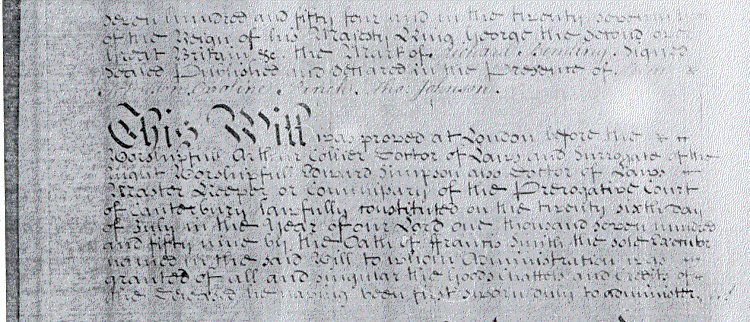 seven hundred and fifty four and in the twenty seventh
of the Reign of his Majesty King George the Second over
Great Britain &c. the Mark of Michael Signed
Sealed Published and declared in the Presence of
Caroline Finch. Tho: Johnson.
This Will was proved at London before the
Worshipfull Arthur Collier Doctor of Laws and Surrogate of the
Right Worshipfull Edward Simpson also Doctor of Laws
Master Keeper or Commissary of the Prerogative Court
of Canterbury lawfully constituted on the twenty sixth Day
of July in the Year of our Lord one thousand seven hundred
and fifty nine by the Oath of Francis Smith the sole Executor
named in the said Will to whom Administration was
granted of all and singular the Goods Chattels and Credits of
the deceased he having been first sworn duly to administer.